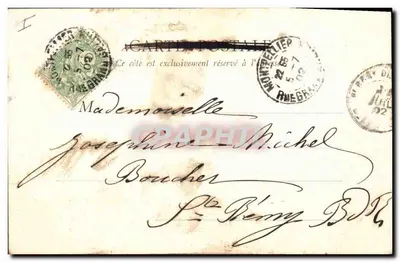 I
CARTE POSTALE
Ce côté est exclusivement réservé à l'a
MONTPELLIER
5-7
02
MONTPELLIER
5-7
02
Mademoiselle
Joséphine-Michel
Boucher
St Rémy BdR